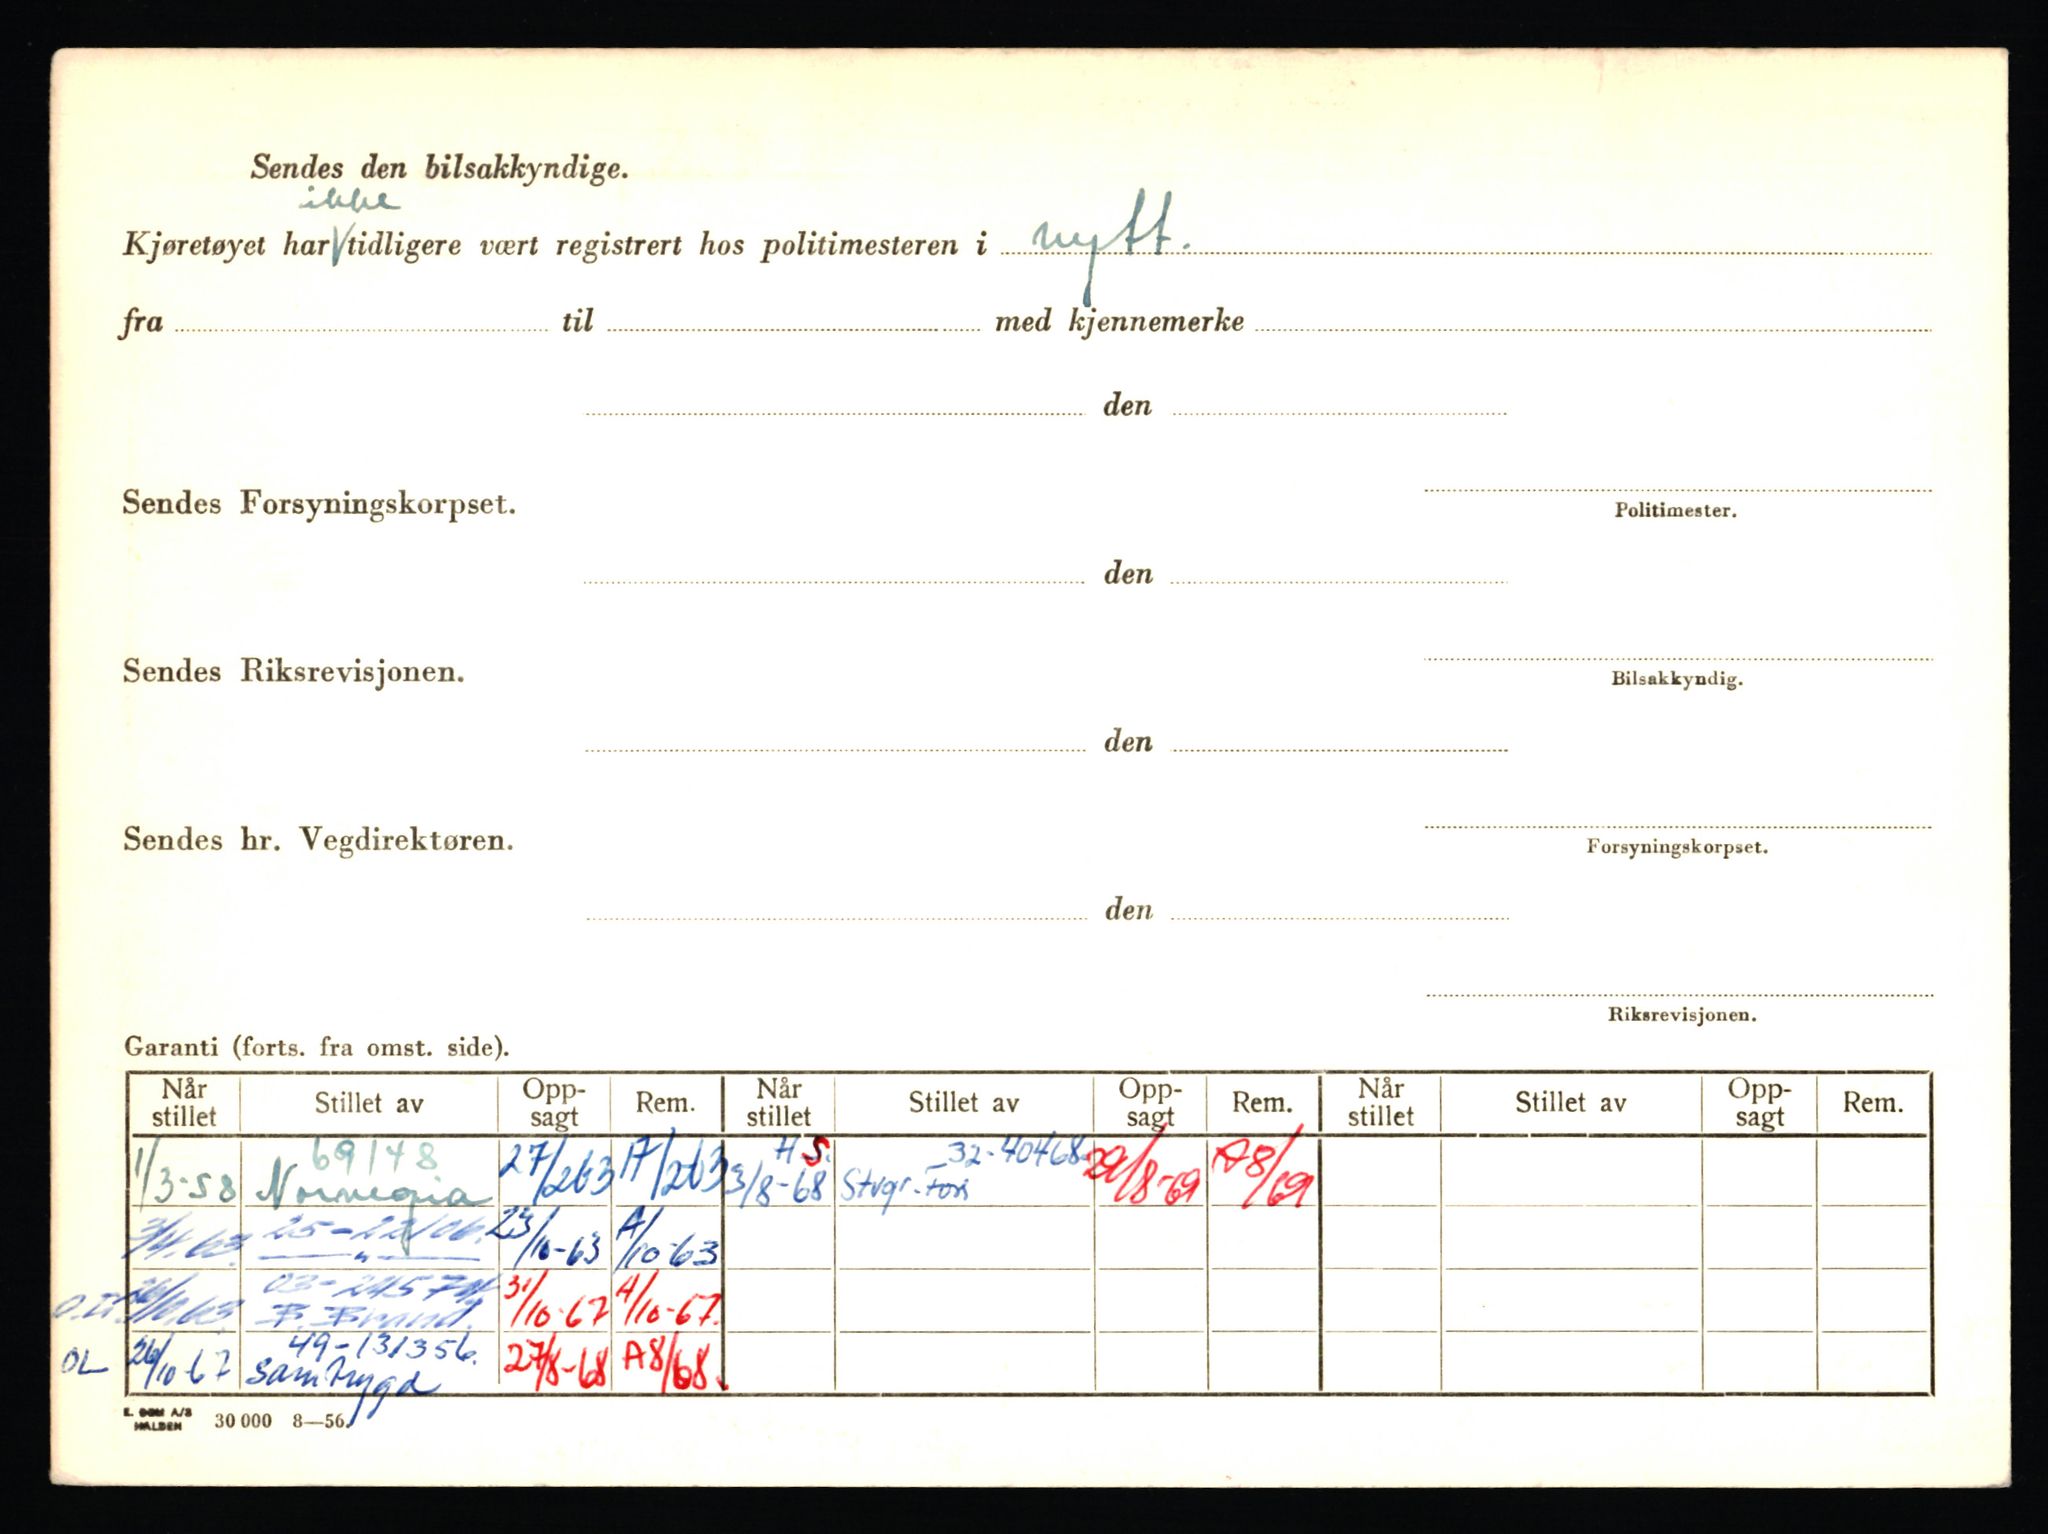 Sendes den bilsakkyndige.
ikke
Kjøretøyet har √ tidligere vært registrert hos politimesteren i nytt.
fra til med kjennemerke
den
Sendes Forsyningskorpset.
Politimester.
den
Sendes Riksrevisjonen.
Bilsakkyndig.
den
Sendes hr. Vegdirektøren.
Forsyningskorpset.
den
Riksrevisjonen.
Garanti (forts. fra omst. side).
Når stillet Stillet av Opp-sagt Rem. Når stillet Stillet av Opp-sagt Rem. Når stillet Stillet av Opp-sagt Rem.
69148 H S. 32-40468
1/3-58 Norvegia 27/263 A/263 3/8-68 Stvgr. 29/8-69 A8/69
3/4.63 23/10-63 A/10-63
03-24574
B. Brand. 31/10-67 A/10-67.
49-131356.
OL 26/10-67 Samtrygd 27/8-68 A8/68.
E. SEM A/S
HALDEN 30 000 8—56.